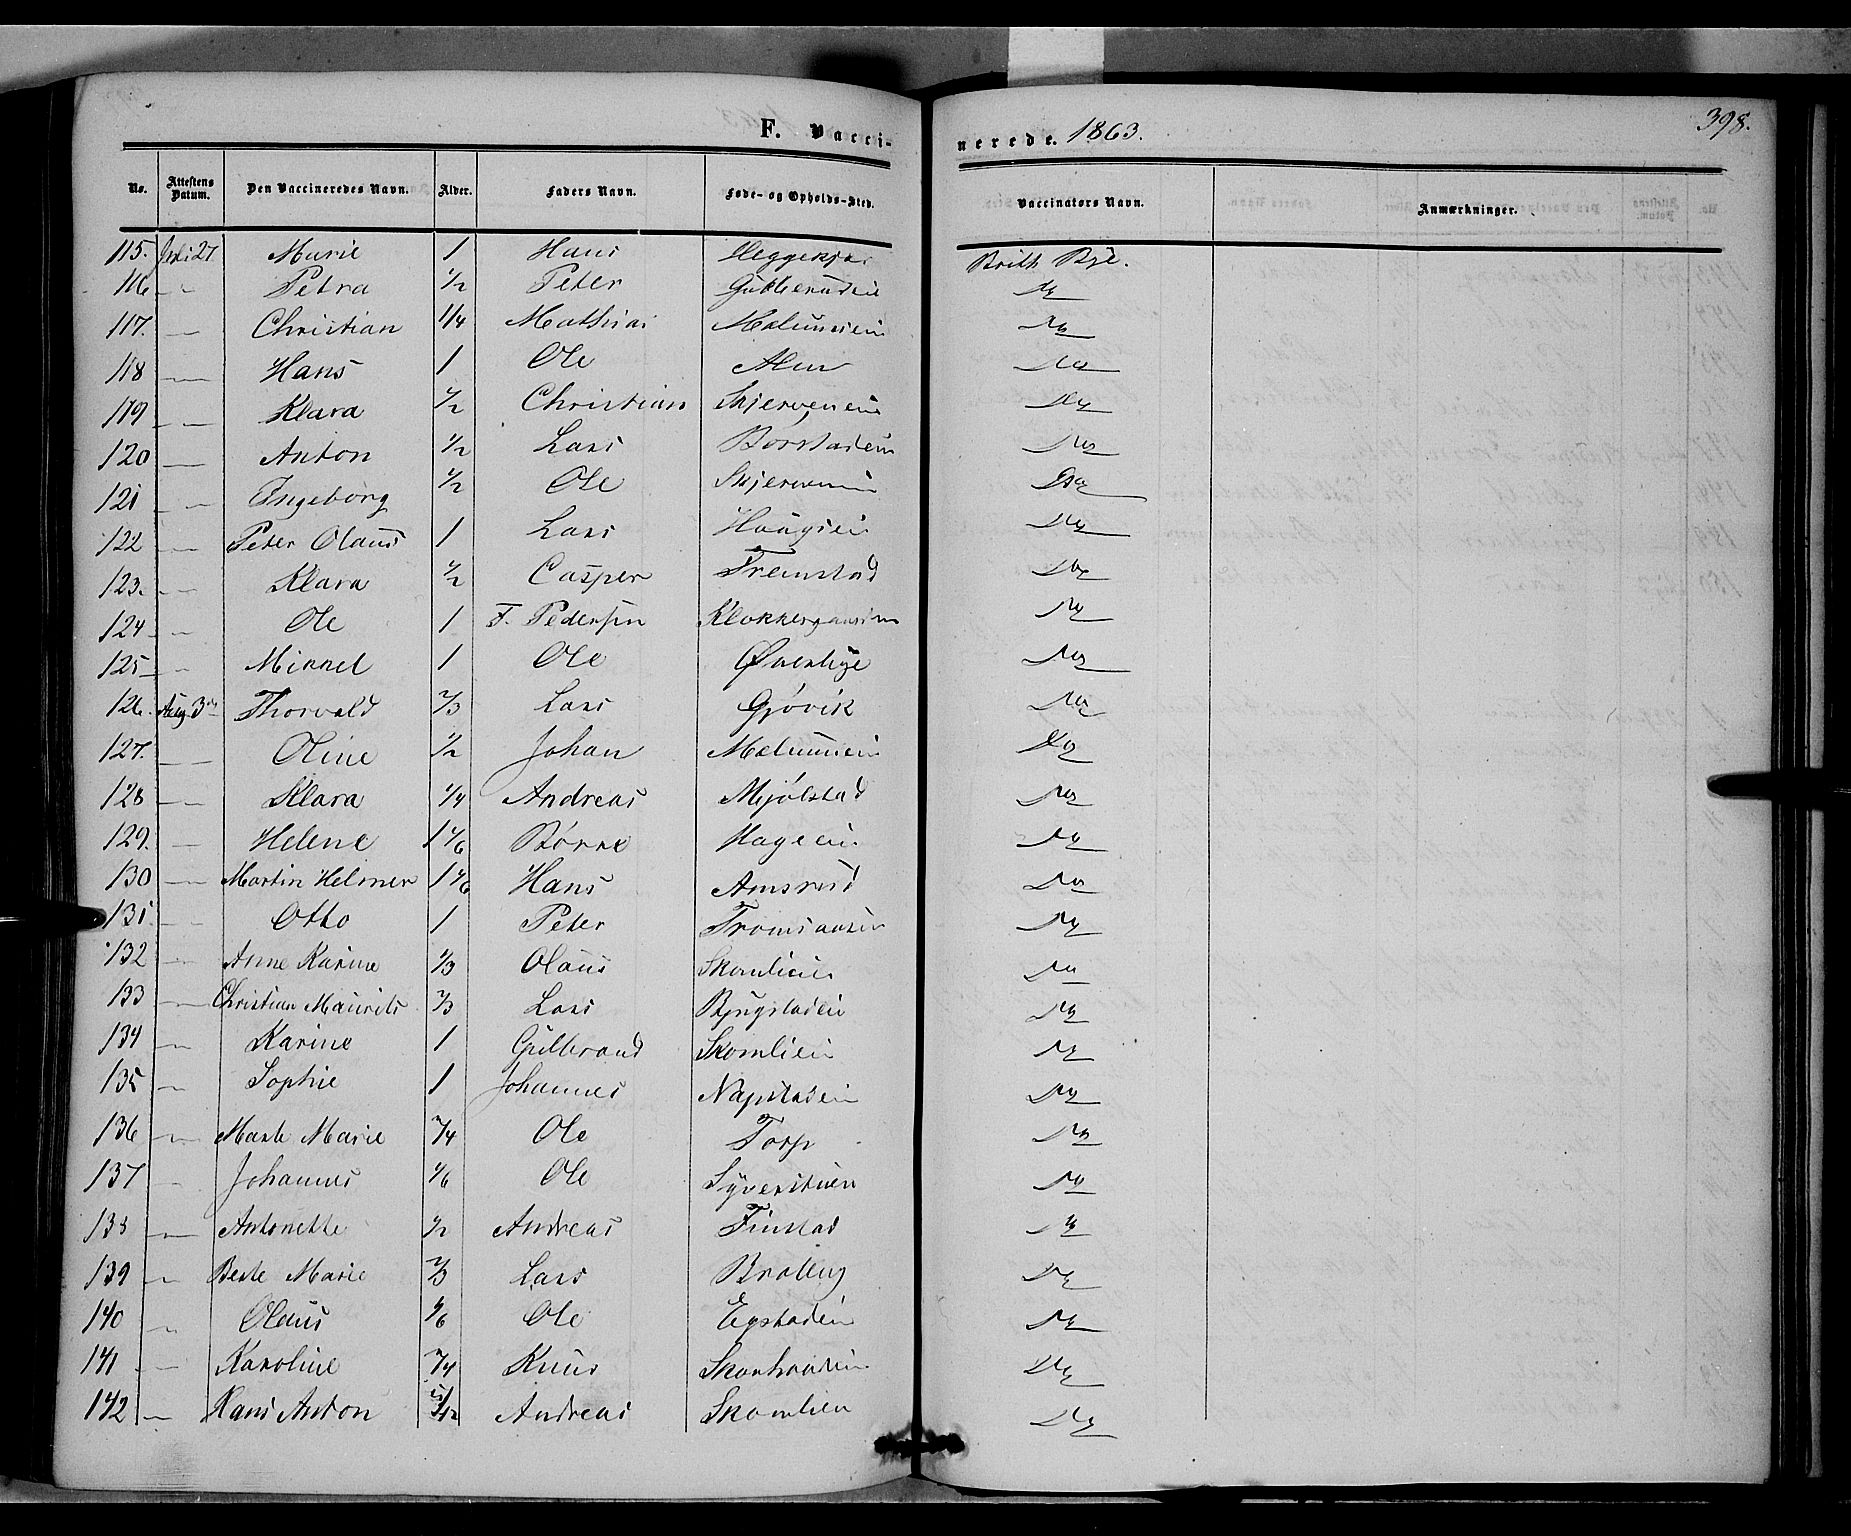 398.
F. Vaccinerede. 1863.
No. Attestens Datum. Den Vaccineredes Navn. Alder. Faders Navn. Føde- og Opholds-Sted. Vaccinators Navn. Anmærkninger.
115. Juli 27 Marie 1 Hans Brith Bye.
116 " Petra 1/2 Peter Do
117. — Christian 1/4 Mathias Do
118 — Hans 1 Ole Alm Do
119 — Klara 1/2 Christian Skjervenein Do
120 — Anton 1/2 Lars Børstadein Do
121 — Ingeborg 1/2 Ole Skjervenein Do
122 — Peter Olaus 1 Lars Haugsein Do
123. — Klara 1/2 Casper Fremstad Do
124 " Ole 1 F. Pedersen Do
125 " Mikkel 1 Ole Do
126. Aug. 3 Thorvald 2/3 Lars Gjøvik Do
127. — Oline 1/2 Johan Do
128 — Klara 1/4 Andreas Mjølstad Do
129. — Helene 1 1/6 Børre Hageein Do
130 — Martin Helmer 1 1/6 Hans Amsrud Do
131 — Otto 1 Peter Do
132 — Anne Karine 1/3 Olaus Skomliein Do
133 — Christian Maurits 2/3 Lars Do
134 — Karine 1 Gulbrand Skomliein Do
135 " Sophie 1 Johannes Napstadein Do
136 — Marte Marie 3/4 Ole Torp Do
137 — Johannes 1/6 Ole Syverstuen Do
138 — Antonette 1/2 Andreas Finstad Do
139 — Berte Marie 2/3 Lars Do
140 " Olaus 1/6 Ole Egstadein Do
141 — Karoline 3/4 Knud Do
142 — Hans Anton Andreas Skomlien Do